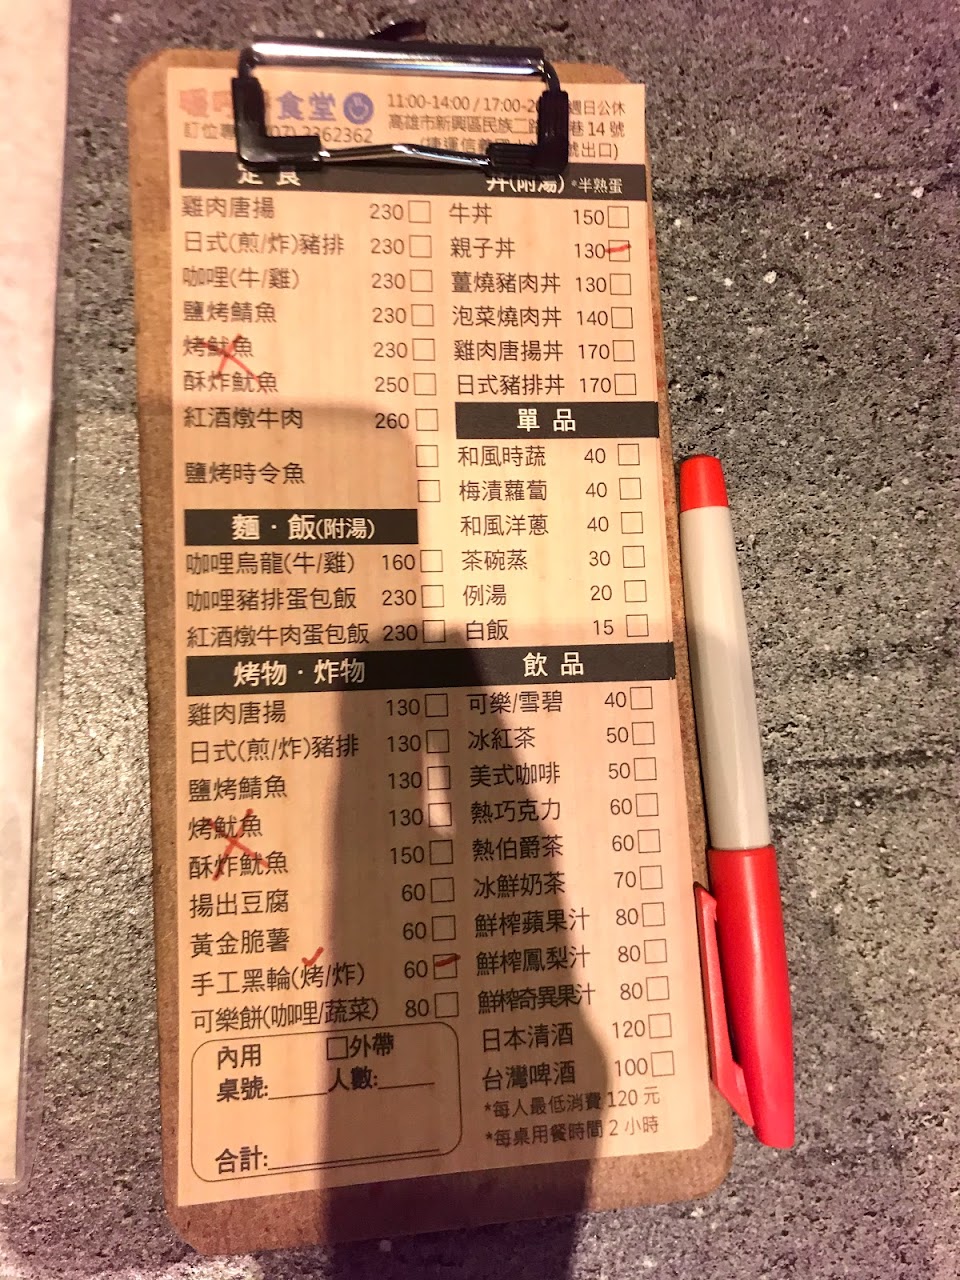 暖 食堂
11:00-14:00 / 17:00-2 週日公休
高雄市新興區民族二路 巷14號
訂位專 (07) 2362362
(捷運信義 號出口)
定食
雞肉唐揚 230
日式(煎/炸)豬排 230
咖哩(牛/雞) 230
鹽烤鯖魚 230
烤魷魚 230
酥炸魷魚 250
紅酒燉牛肉 260
鹽烤時令魚
麵·飯(附湯)
咖哩烏龍(牛/雞) 160
咖哩豬排蛋包飯 230
紅酒燉牛肉蛋包飯 230
丼(附湯) *半熟蛋
牛丼 150
親子丼 130
薑燒豬肉丼 130
泡菜燒肉丼 140
雞肉唐揚丼 170
日式豬排丼 170
單品
和風時蔬 40
梅漬蘿蔔 40
和風洋蔥 40
茶碗蒸 30
例湯 20
白飯 15
烤物·炸物
雞肉唐揚 130
日式(煎/炸)豬排 130
鹽烤鯖魚 130
烤魷魚 130
酥炸魷魚 150
揚出豆腐 60
黃金脆薯 60
手工黑輪(烤/炸) 60
可樂餅(咖哩/蔬菜) 80
飲品
可樂/雪碧 40
冰紅茶 50
美式咖啡 50
熱巧克力 60
熱伯爵茶 60
冰鮮奶茶 70
鮮榨蘋果汁 80
鮮榨鳳梨汁 80
鮮榨奇異果汁 80
日本清酒 120
台灣啤酒 100
*每人最低消費 120 元
*每桌用餐時間 2 小時
內用 □外帶
桌號:_____人數:_____
合計:_____